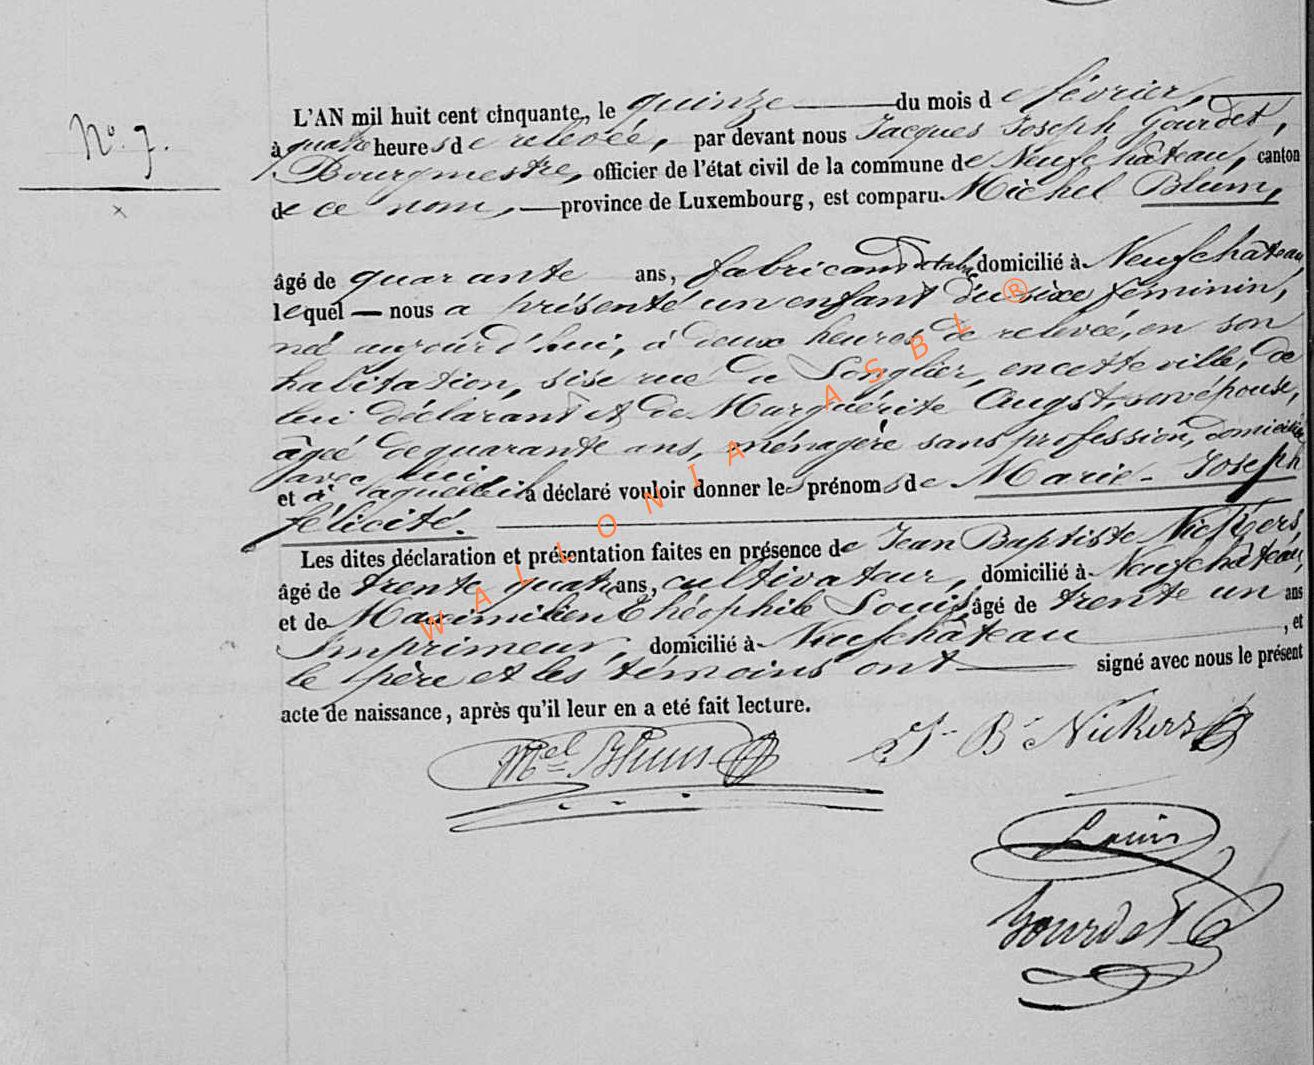 N.° 7.
L'AN mil huit cent cinquante, le quinze du mois de février,
à quatre heures de relevée, par devant nous Jacques Joseph Gourdet,
Bourgmestre, officier de l'état civil de la commune de Neufchâteau, canton
de ce nom, province de Luxembourg, est comparu Michel Blum,
âgé de quarante ans, fabricant de tabac domicilié à Neufchâteau,
lequel nous a présenté un enfant du sexe féminin,
né aujourd'hui, à deux heures de relevée, en son
habitation, sise rue de Longlier, en cette ville, de
lui déclarant et de Marguérite Augst, son épouse,
âgée de quarante ans, ménagère sans profession, domiciliée
avec lui
et à laquelle il a déclaré vouloir donner les prénoms de Marie-Joseph
félicité.
Les dites déclaration et présentation faites en présence de Jean Baptiste Nickers,
âgé de trente quatre ans, cultivateur, domicilié à Neufchâteau,
et de Maximilien Théophile Louis, âgé de trente un ans
Imprimeur, domicilié à Neufchâteau, et
le père et les témoins ont signé avec nous le présent
acte de naissance, après qu'il leur en a eté fait lecture.
Mel Blum J. Bte Nickers
Louis
Gourdet
WALLONIA ASBL ®